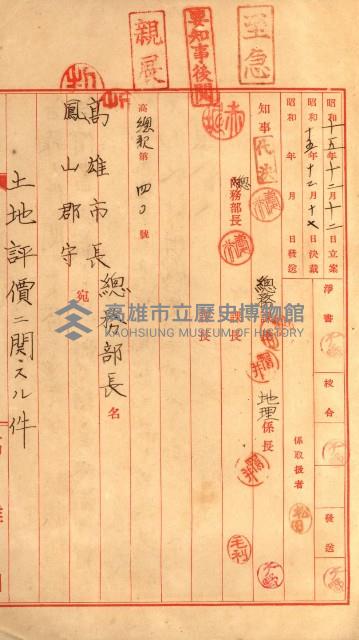 至急
要知事後閲
親展
淨書 校合 發送
昭和十五年十二月十二日立案
昭和十五年十二月十七日決裁
昭和 年 月 日發送
係取扱者 松田
知事 代決
總務部長
總務課長
地理係長
毛利
高總秘第四〇號
總務部長名
高雄市長
鳳山郡守
宛
土地評價ニ関スル件
高雄市立歷史博物館
KAOHSIUNG MUSEUM OF HISTORY